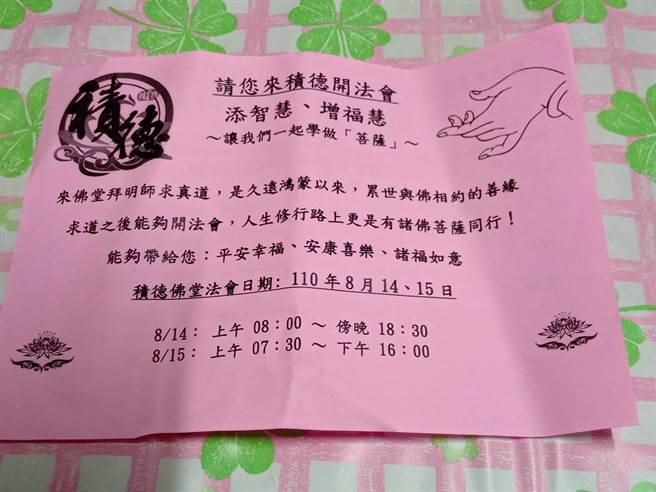 積德
請您來積德開法會
添智慧、增福慧
～讓我們一起學做「菩薩」～
來佛堂拜明師求真道，是久遠鴻蒙以來，累世與佛相約的善緣
求道之後能夠開法會，人生修行路上更是有諸佛菩薩同行！
能夠帶給您：平安幸福、安康喜樂、諸福如意
積德佛堂法會日期: 110 年 8 月 14、15 日
8/14： 上午 08：00 ～ 傍晚 18：30
8/15： 上午 07：30 ～ 下午 16：00